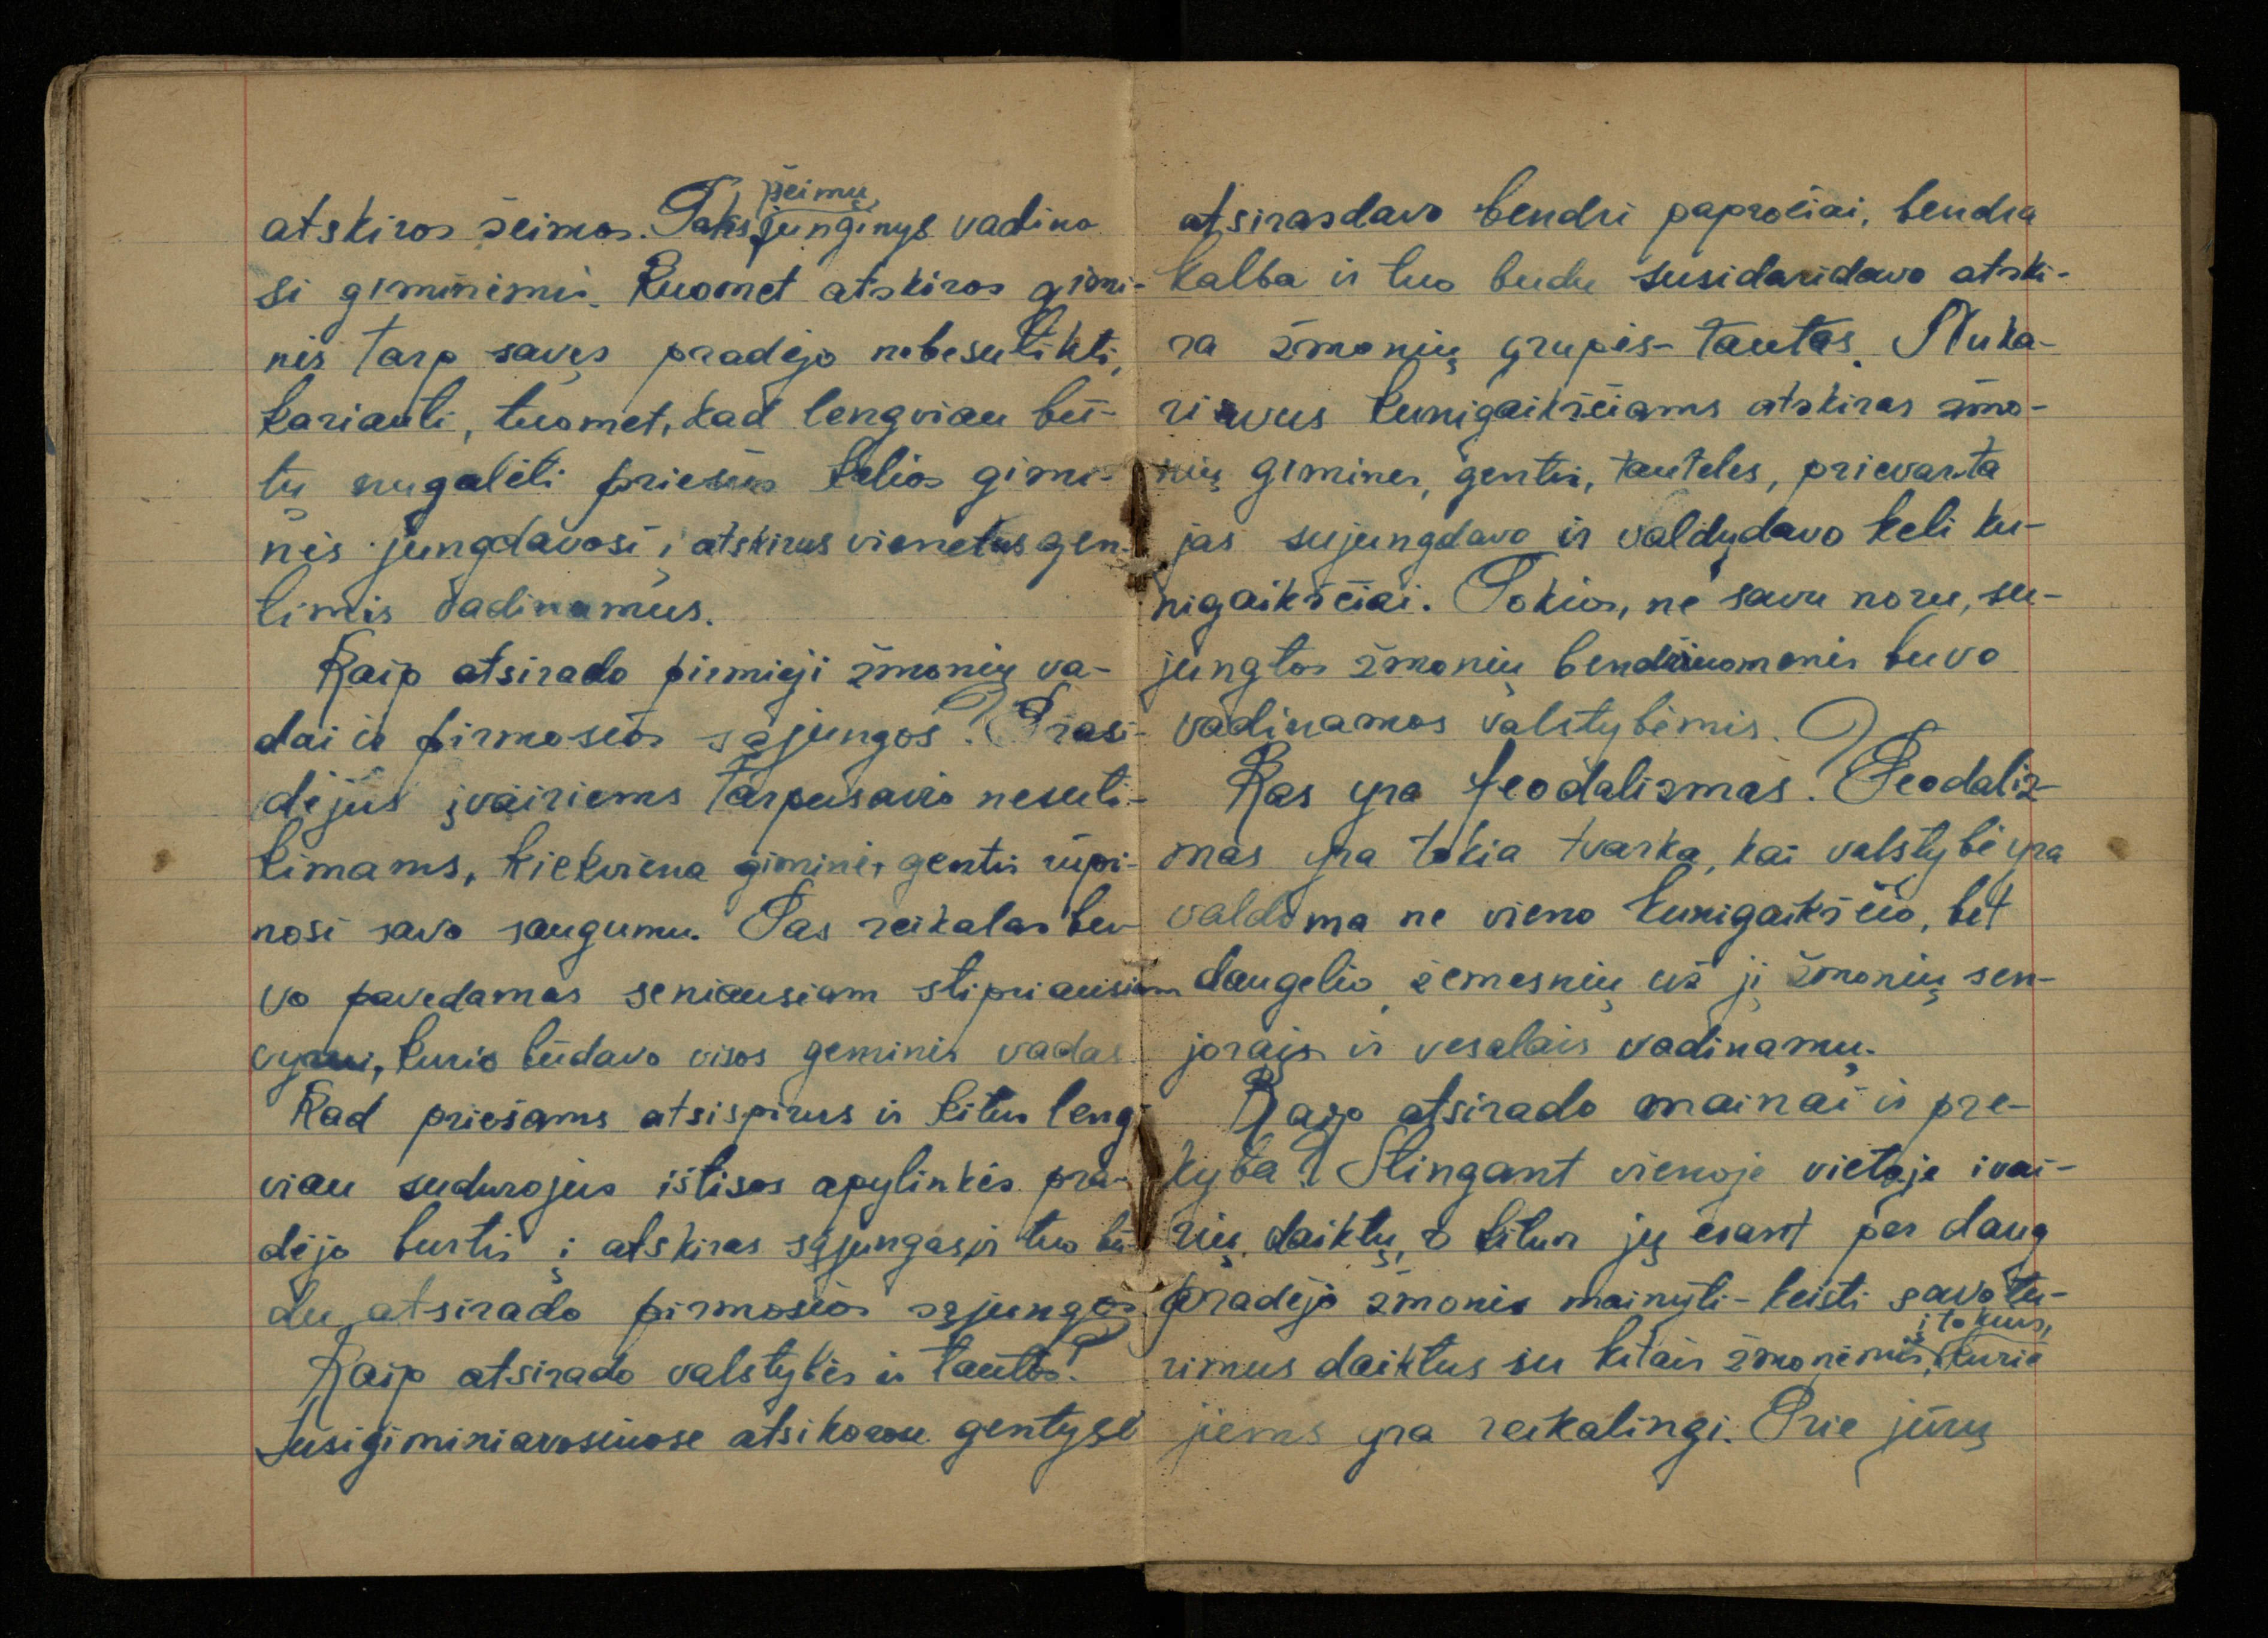 atskiros šeimos. Toks šeimų jungynys vadino
si giminėmis. Kuomet atskiros gimi-
nės tarp savęs pradėjo nebesutikti,
kariauti, tuomet, kad lengviau bū-
tų nugalėti priešus kelios gimi-
nės jungdavosi į atskirus vienetus gen-
timis vadinamus.
Kaip atsirado pirmieji žmonių va-
dai ir pirmosios sąjungos? Prasi-
dėjus įvairiems tarpusavio nesuti-
kimams, kiekviena giminė, gentis rūpi-
nosi savo saugumu. Tas reikalas bu-
vo pavedamas seniausiam stipriausiam
vyrui, kuris būdavo visos geminės vadas.
Kad priešams atsispirus ir kitus leng
viau sudurojus ištisos apylinkės pra-
dėjo burtis į atskiras sąjungas ir tuo bū-
du atsirado pirmosios sąjungos.
Kaip atsirado valstybės ir tautos?
Susigiminiavosiuose atsikorose gentyse
atsirasdavo bendri papročiai, bendra
kalba ir tuo budu susidaridavo atski-
ra žmonių grupės - tautas. Nuka-
riavus kunigaikščiams atskiras žmo-
nių gimines, gentis, tauteles, prievarta
jas sujungdavo ir valdydavo keli ku-
nigaikščiai. Tokios, ne savu noru, su-
jungtos žmonių bendruomenės buvo
vadinamos valstybėmis.
Kas yra feodalizmas? Feodaliz-
mas yra tokia tvarka, kai valstybė yra
valdoma ne vieno kunigaikščio, bet
daugelio žemesnių už jį žmonių sen-
jorais ir vesalais vadinamų.
Kaip atsirado mainai ir pre-
kyba? Stingant vienoje vietoje ivai-
rių daiktų, o kitur jų esant per daug
pradėjo žmonės mainyti - keisti savo tu-
rimus daiktus su kitais žmonėmis, į tokius, kurie
jiems yra reikalingi. Prie jūrų